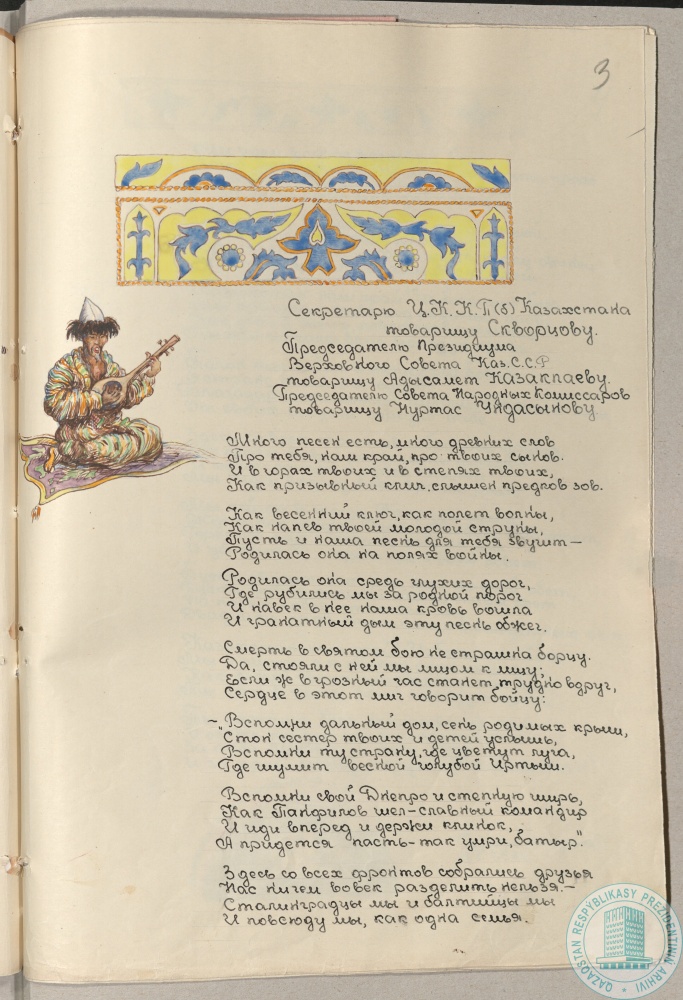 3
Секретарю Ц.К.К.П(б) Казахстана
товарищу Скворцову.
Председателю Президиума
Верховного Совета Каз.С.С.Р
товарищу Адысамет Казакпаеву.
Председателю Совета Народных Комиссаров
товарищу Нуртас Ундасынову
Много песен есть, много древних слов
Про тебя, наш край, про твоих сынов.
И в горах твоих и в степях твоих,
Как призывный клич, слышен предков зов.
Как весенний ключ, как полет волны,
Как напев твоей молодой струны,
Пусть и наша песнь для тебя звучит —
Родилась она на полях войны.
Родилась она средь глухих дорог,
Где рубились мы за родной порог
И навек в нее наша кровь вошла
И гранатный дым эту песнь обжег.
Смерть в святом бою не страшна борцу.
Да, стояли с ней мы лицом к лицу;
Если ж в грозный час станет трудно вдруг,
Сердце в этот миг говорит бойцу:
— „Вспомни дальный дом, сень родимых крыш,
Стон сестер твоих и детей услышь,
Вспомни ту страну, где цветут луга,
Где шумит весной голубой Иртыш.
Вспомни свой Днепр и степную ширь,
Как Панфилов шел - славный командир
И иди вперед и держи клинок,
А придется пасть - так умри, батыр".
Здесь со всех фронтов собрались друзья
Нас ничем вовек разделить нельзя. —
Сталинградцы мы и балтийцы мы
И повсюду мы, как одна семья.
QAZAQSTAN RESPÝBLIKASY PREZIDENTINIŃ ARHIVI